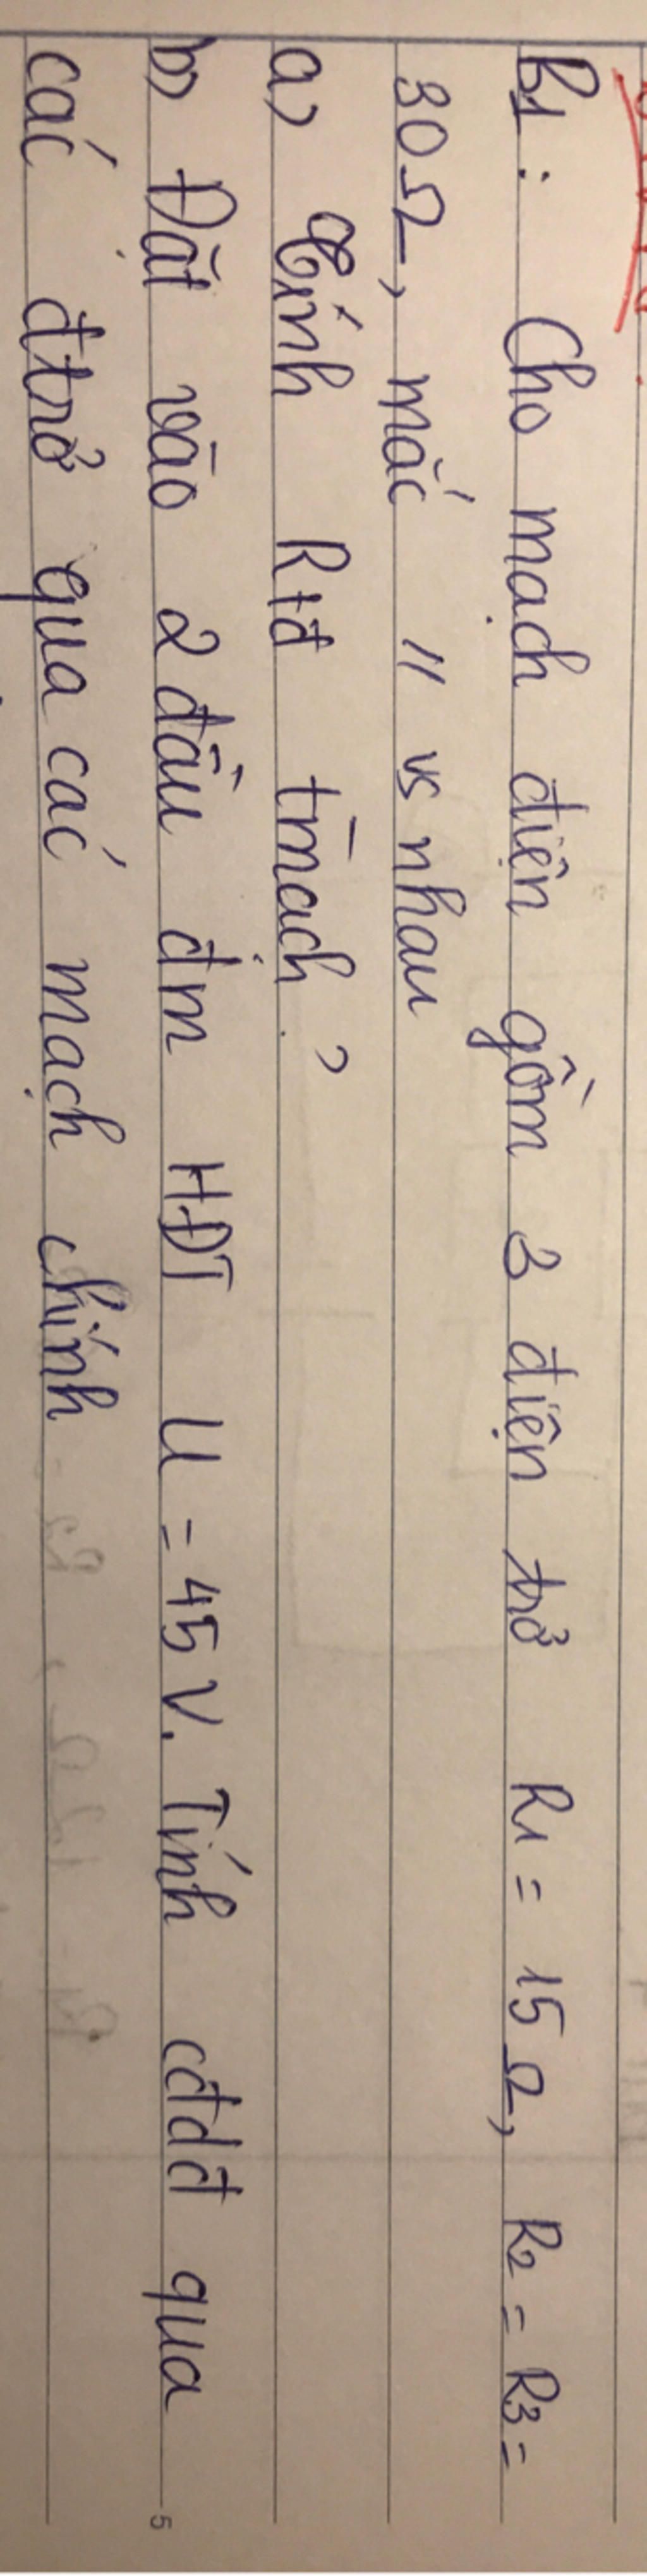 B1: Cho mạch điện gồm 3 điện trở R1 = 15 Ω, R2 = R3 =
30 Ω, mắc // vs nhau
a) Tính Rtđ tmạch?
b) Đặt vào 2 đầu đm HĐT U = 45 V. Tính cđdđ qua
các đtrở qua các mạch chính
5